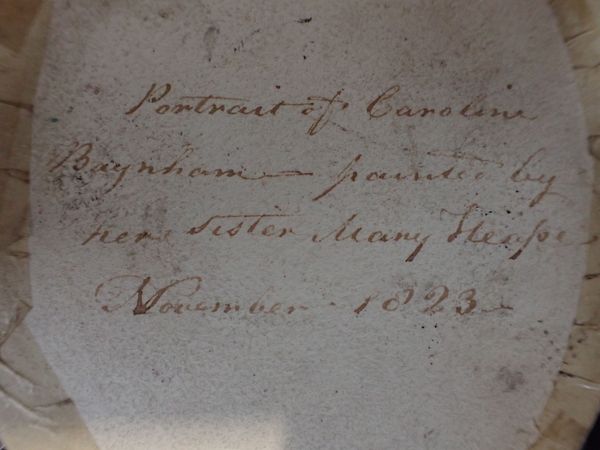 Portrait of Caroline
Baynham — painted by
her sister Mary Heape
November - 1823 —